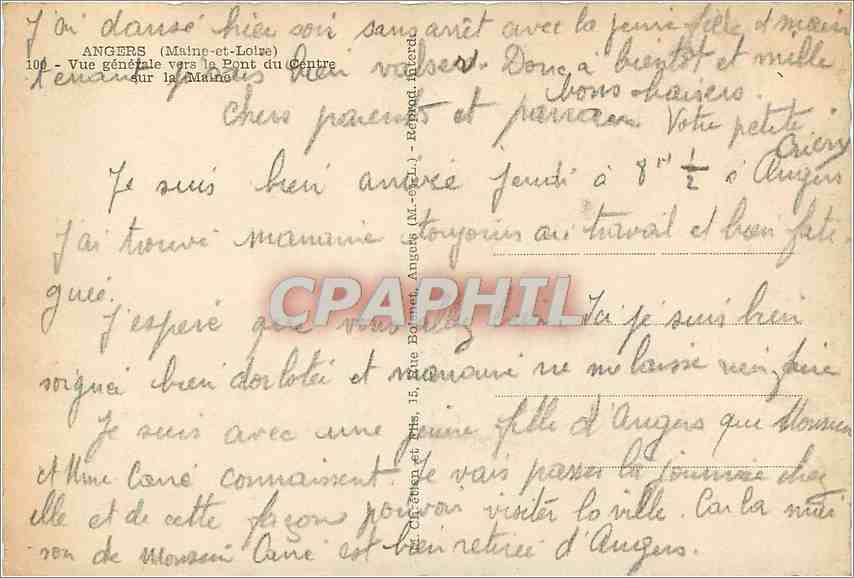 J'ai dansé hier soir sans arrêt avec la jeune fille et main
ANGERS (Maine-et-Loire)
100 - Vue générale vers le Pont du Centre
sur la Maine
tenant je sais bien valser. Donc à bientôt et mille
bons baisers.
Votre petite
chers parents et parrain
Je suis bien arrivée jeudi à 8 H 1/2 à Angers
J'ai trouvé marraine toujours au travail et bien fati-
guée.
J'espère que vous allez bien. Ici je suis bien
soignée bien dorlotée et marraine ne me laisse rien faire
Je suis avec une jeune fille d'Angers que Monsieur
et Mme Carré connaissent. Je vais passer la journée chez
elle et de cette façon pouvoir visiter la ville. Car la mai
son de Monsieur Carré est bien retirée d'Angers.
Chrétien et Fils, 15, Rue Boisnet, Angers (M.-et-L.) - Reprod. interdite
CPAPHIL